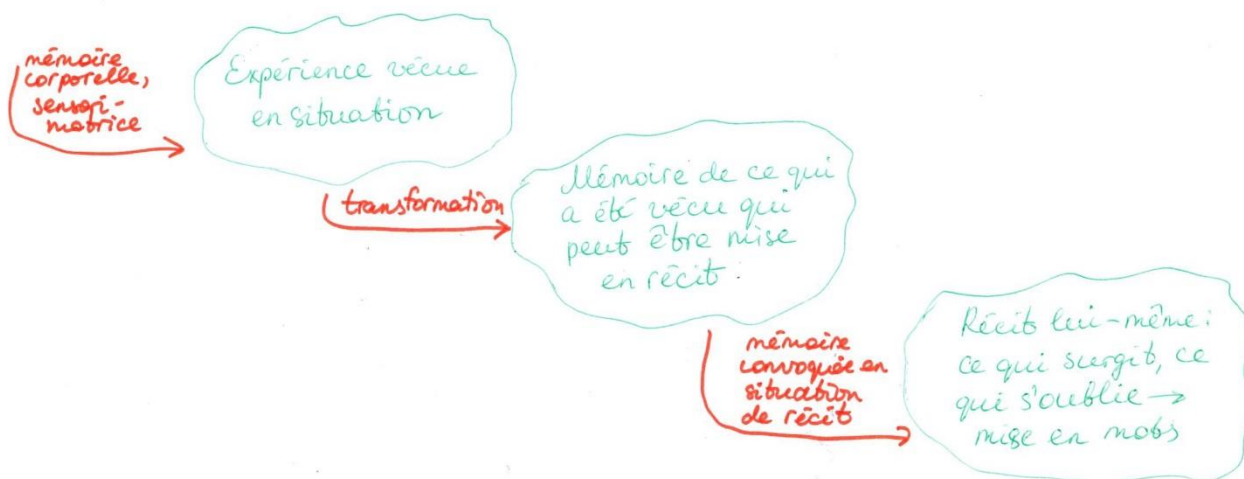 mémoire
corporelle,
sensori-
motrice
Expérience vécue
en situation
transformation
Mémoire de ce qui
a été vécu qui
peut être mise
en récit
mémoire
convoquée en
situation
de récit
Récit lui-même:
ce qui surgit, ce
qui s'oublie →
mise en mots